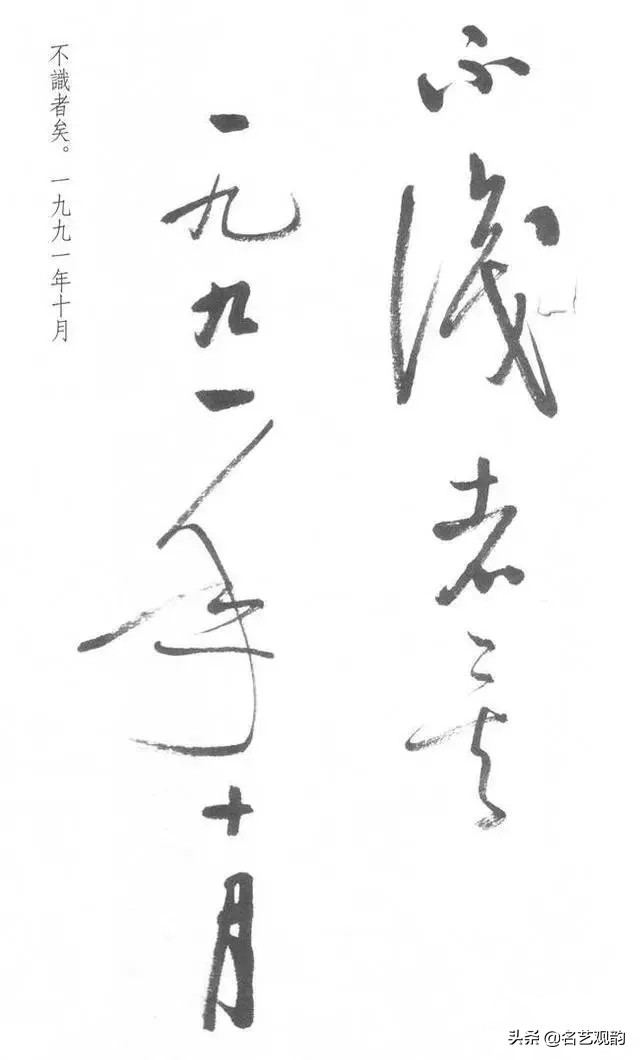 不識者矣
一九九一年十月
不識者矣。一九九一年十月
头条 @名艺观韵